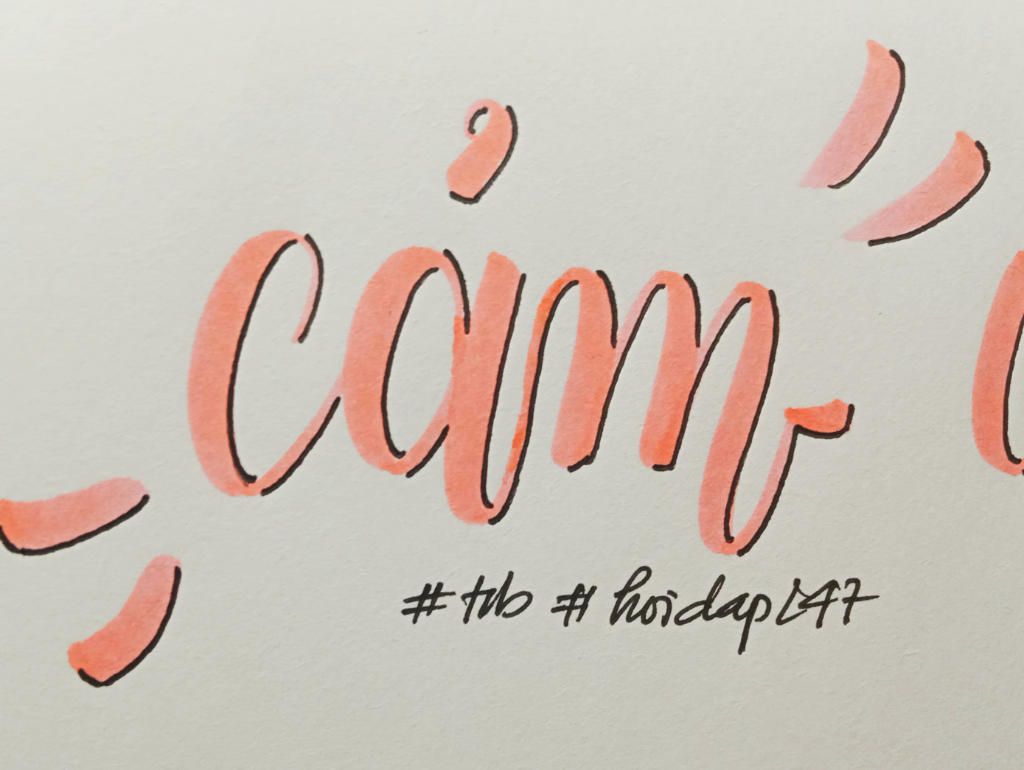 cảm
#tvb #hoidap247